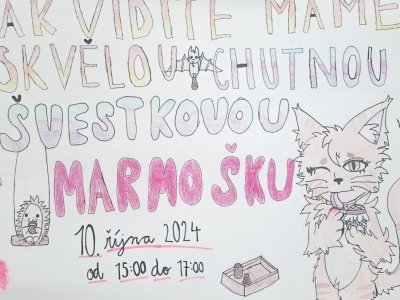 AK VIDÍTE MÁME
SKVĚLOU CHUTNOU
ŠVESTKOVOU
MARMOŠKU
10. října 2024
od 15:00 do 17:00